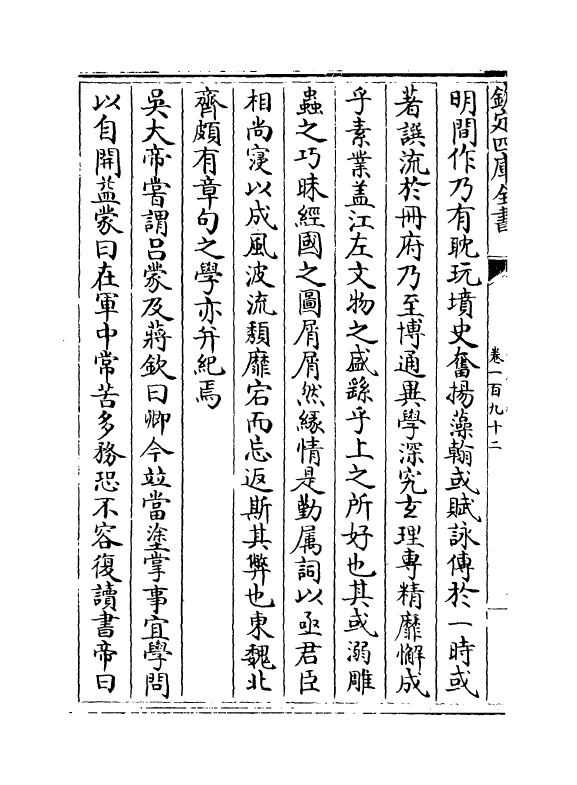 欽定四庫全書
卷一百九十二
明間作乃有耽玩墳史奮揚藻翰或賦詠傳於一時或
著譔流於冊府乃至博通異學深究玄理專精靡懈成
乎素業盖江左文物之盛繇乎上之所好也其或溺雕
蟲之巧昧經國之圖屑屑然緣情是勤属詞以亟君臣
相尚寖以成風波流頹靡宕而忘返斯其弊也東魏北
齊頗有章句之學亦弁紀焉
吳大帝嘗謂吕蒙及蔣欽曰卿今竝當塗掌事宜學問
以自開益蒙曰在軍中常苦多務恐不容復讀書帝曰